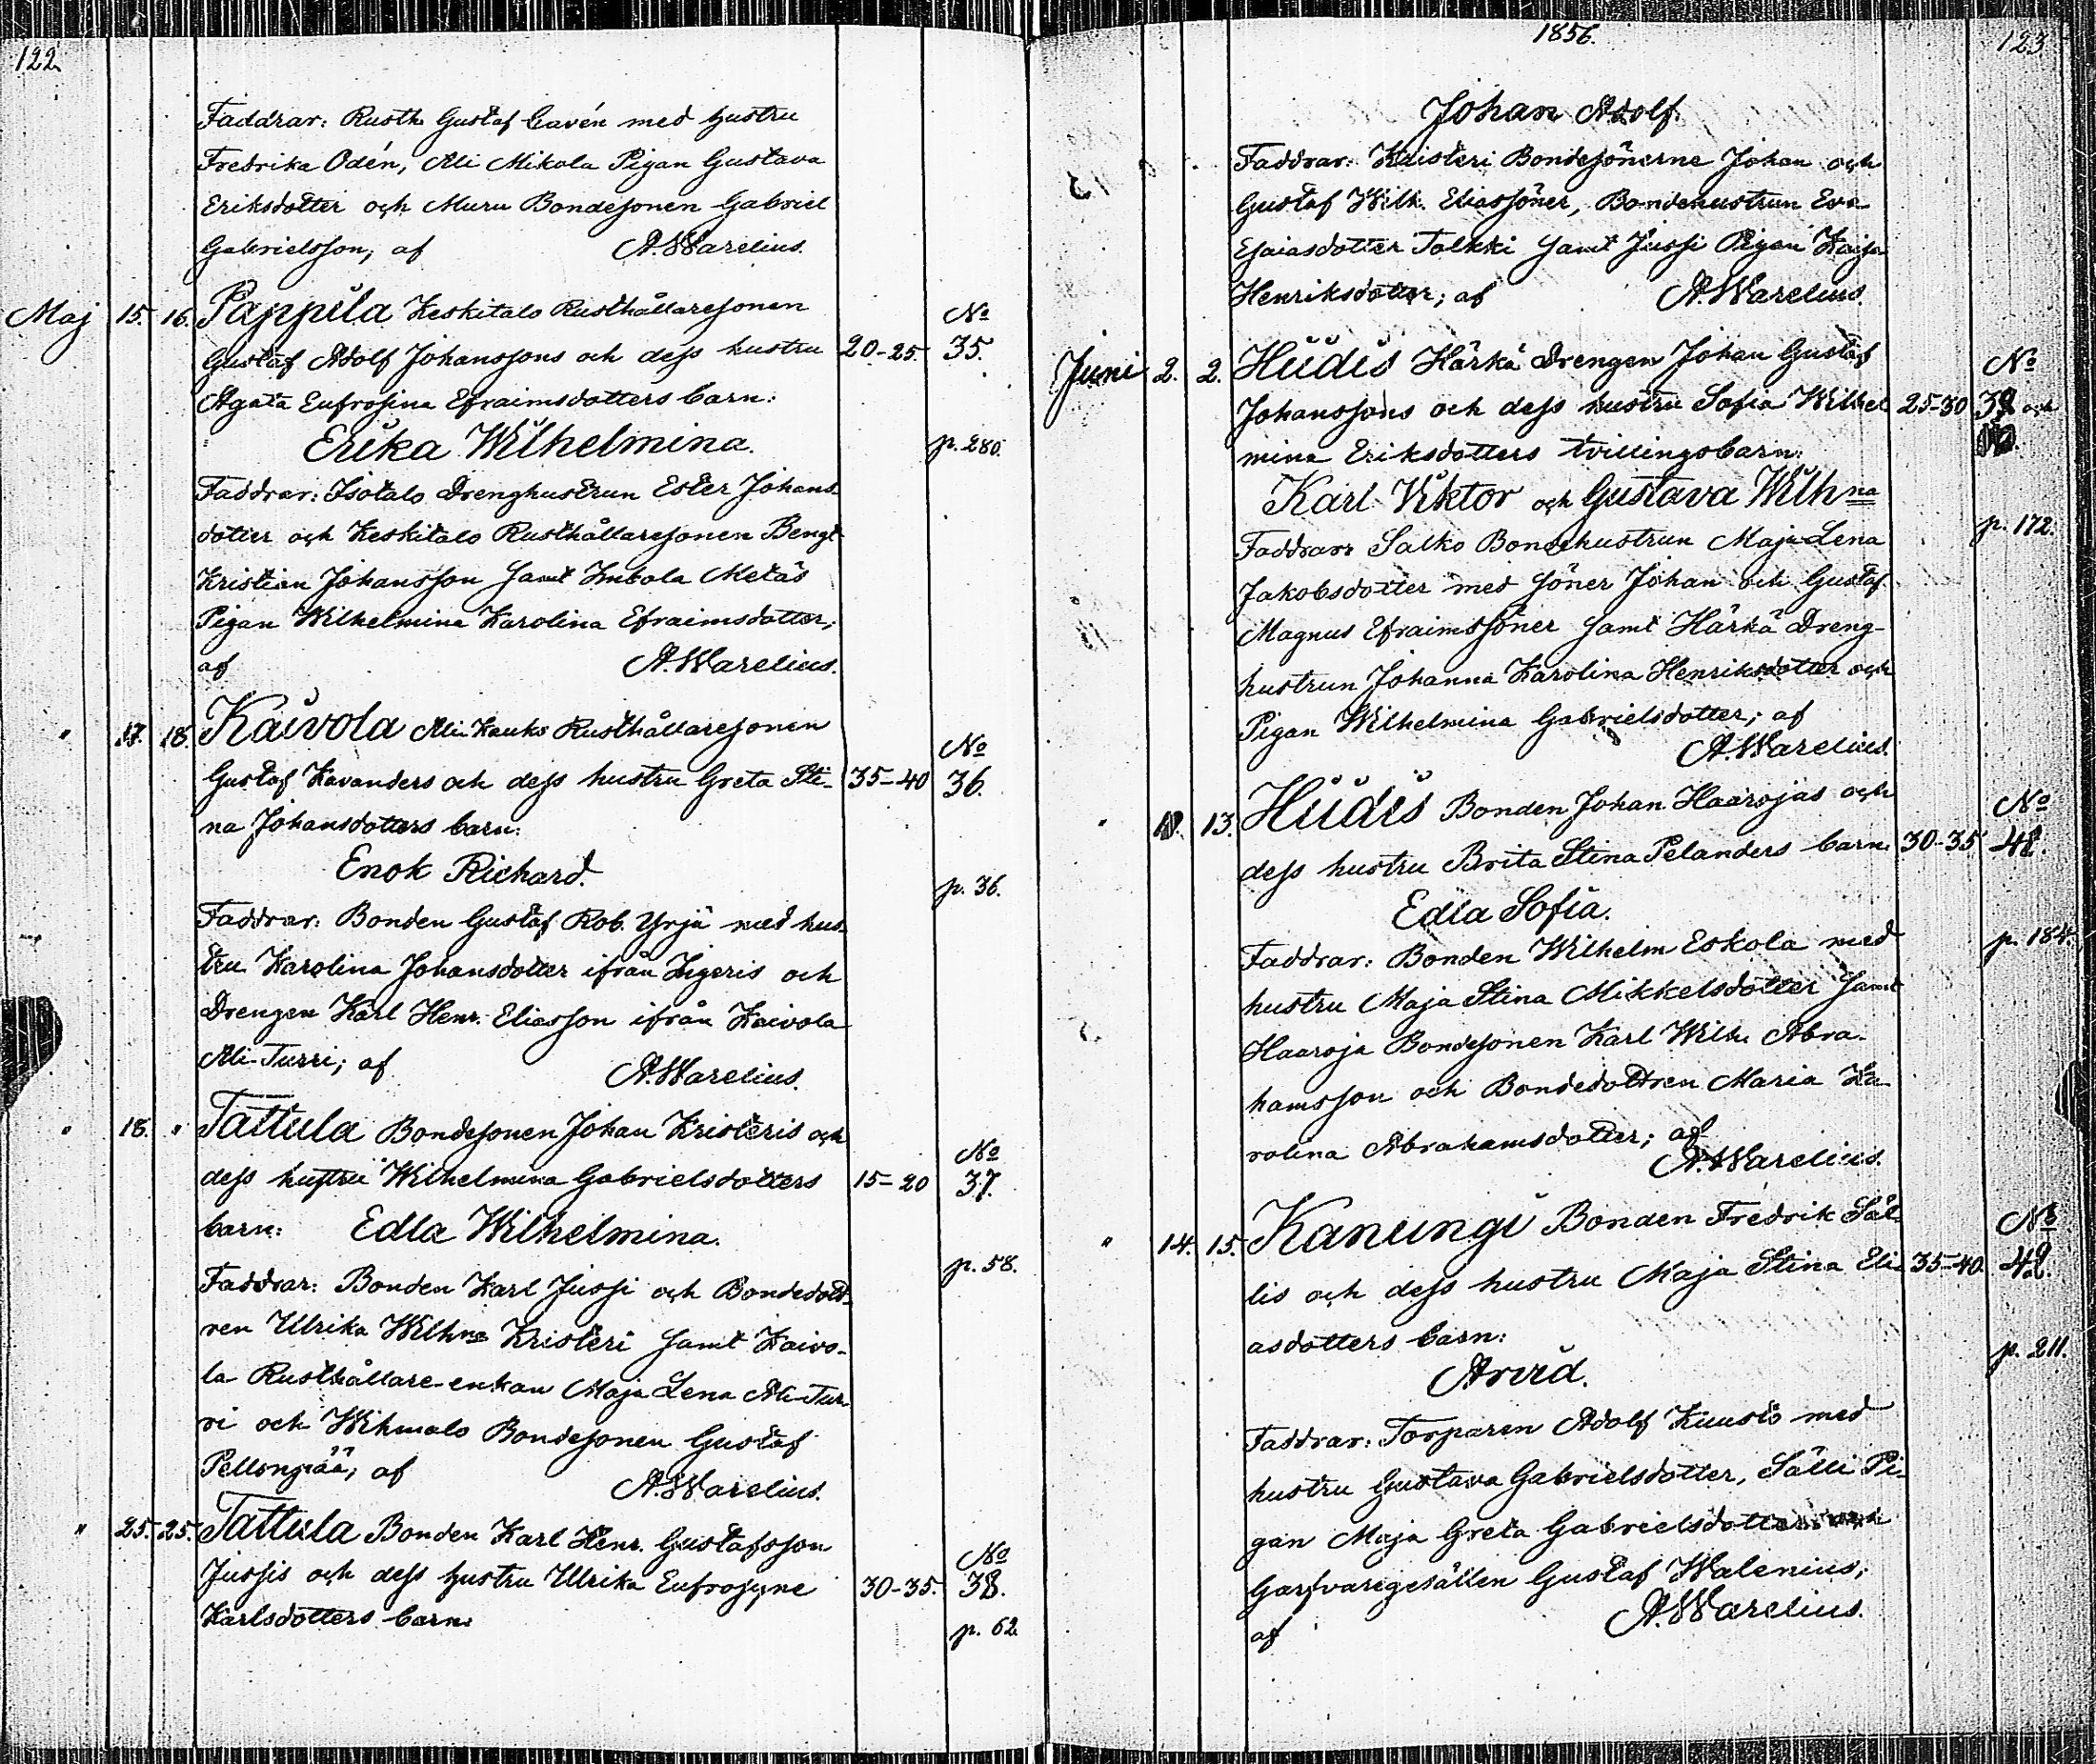 122
Faddrar: Rusth. Gustaf Cavén med hustru
Fredrika Odén, Ali Mikola Pigan Gustava
Eriksdotter och Muru Bondesonen Gabriel
Gabrielsson; af A. Warelius.
Maj 15. 16. Pappila Keskitalo Rusthållaresonen No
Gustaf Adolf Johanssons och dess hustru 20-25. 35.
Agata Eufrosina Efraimsdotters barn:
Erika Wilhelmina. p. 280.
Faddrar: Isotalo Drenghustrun Ester Johans-
dotter och Keskitalo Rusthållaresonen Bengt
Kristian Johansson samt Metäs
Pigan Wilhelmina Karolina Efraimsdotter;
af A. Warelius.
" 17. 18. Kaivola Ali-Kauko Rusthållaresonen No
Gustaf Kavanders och dess hustru Greta Sti- 35-40 36.
na Johansdotters barn:
Enok Richard. p. 36.
Faddrar: Bonden Gustaf Rob. Yrjä med hus-
tru Karolina Johansdotter ifrån och
Drengen Karl Henr. Eliasson ifrån Kaivola
Ali-Turri; af A. Warelius.
" 18. " Tattula Bondesonen Johan Kristeris och No
dess hustru Wilhelmina Gabrielsdotters 15-20 37.
barn: Edla Wilhelmina.
p. 58.
Faddrar: Bonden Karl Jussi och Bondedott-
ren Ulrika Wilhna Kristeri samt Kaivo-
la Rusthållare-enkan Maja Lena Ali-Tur-
ri och Wihmalo Bondesonen Gustaf
Pellonpää; af A. Warelius.
" 25. 25. Tattula Bonden Karl Henr. Gustafsson No
Jussis och dess hustru Ulrika Eufrosyne 30-35. 38.
Karlsdotters barn: p. 62.
1856. 123
Johan Adolf.
Faddrar: Kristeri Bondesönerne Johan och
Gustaf Wilh. Eliassöner, Bondehustrun Eva
Esaiasdotter Tolkki samt Jussi Pigan Kaisa
Henriksdotter; af A. Warelius.
Juni 2. 2. Hiidis Härkä Drengen Johan Gustaf No
Johanssons och dess hustru Sofia Wilhel 25-30 39 och
mina Eriksdotters tvillingsbarn:
Karl Viktor och Gustava Wilhna
p. 172.
Faddrar: Salko Bondehustrun Maja Lena
Jakobsdotter med söner Johan och Gustaf
Magnus Efraimssöner samt Härkä Dreng-
hustrun Johanna Karolina Henriksdotter och
Pigan Wilhelmina Gabrielsdotter; af
A. Warelius.
" 13. Hiidis Bonden Johan Haarojas och No
dess hustru Brita Stina Pelanders barn: 30-35
Edla Sofia.
p. 184.
Faddrar: Bonden Wilhelm Eskola med
hustru Maja Stina Mikkelsdotter samt
Haaroja Bondesonen Karl Wilh. Abra-
hamsson och Bondedottren Maria Ka-
rolina Abrahamsdotter; af
A. Warelius.
" 14. 15. Kanungi Bonden Fredrik Säl- No
lis och dess hustru Maja Stina Eli- 35-40. 42.
asdotters barn:
p. 211.
Arvid.
Faddrar: Torparen Adolf Kuusto med
hustru Gustava Gabrielsdotter, Sälli Pi-
gan Maja Greta Gabrielsdotter
Garfvaregesällen Gustaf Walenius;
af A. Warelius.